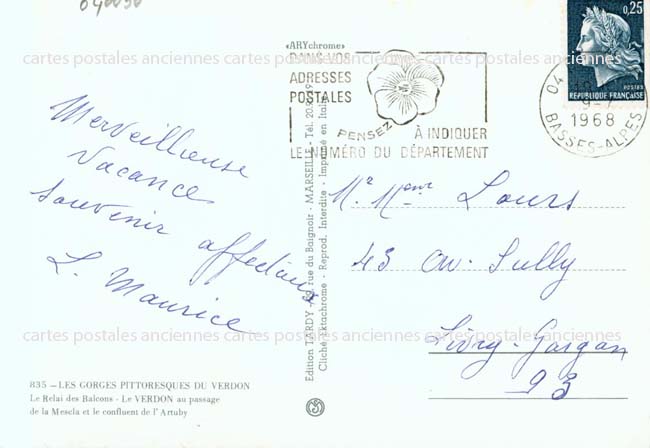 040030
cartes postales anciennes cartes postales anciennes cartes postales anciennes
«ARYchrome»
DANS VOS
ADRESSES
POSTALES
PENSEZ
À INDIQUER
LE NUMÉRO DU DÉPARTEMENT
0,25
POSTES
REPUBLIQUE FRANÇAISE
04
1968
BASSES-ALPES
Merveilleuse
vacance
souvenir affectueux
L. Maurice
Mr Meme Lours
43 av. Sully
Livry-Gargan
93
Edition TARDY rue du Baignoir - MARSEILLE - Tél. 20
Cliché Ektachrome - Reprod. Interdite - Imprimé en Italie
cartes postales anciennes cartes postales anciennes cartes postales anciennes
835 - LES GORGES PITTORESQUES DU VERDON
Le Relai des Balcons - Le VERDON au passage
de la Mescla et le confluent de l'Artuby